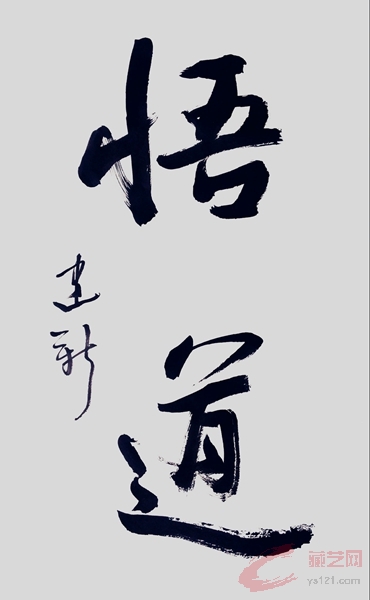 悟道
建新
藏艺网
ys121.com